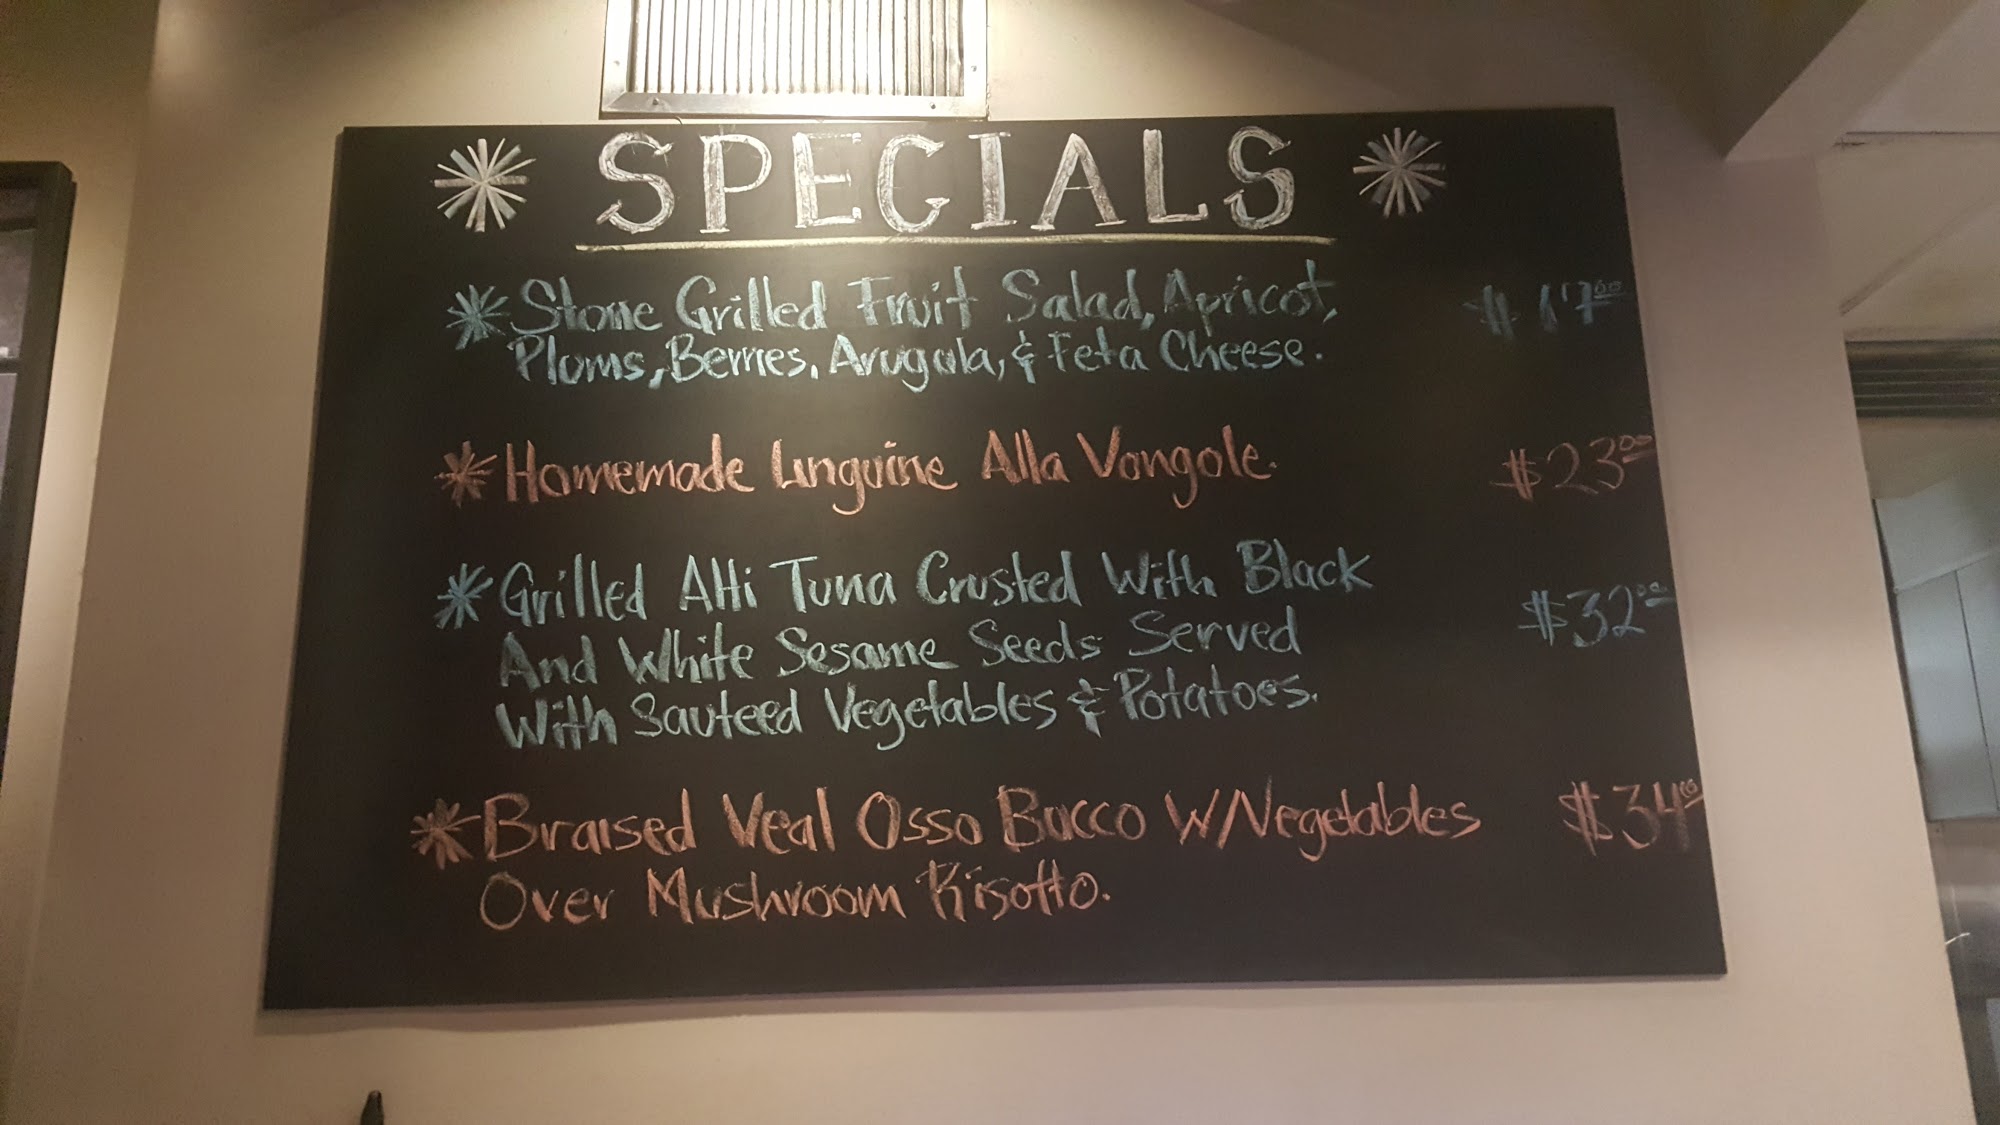 SPECIALS
Stone Grilled Fruit Salad, Apricot, $17.00
Plums, Berries, Arugula, & Feta Cheese.
Homemade Linguine Alla Vongole. $23.00
Grilled AHi Tuna Crusted With Black
And White Sesame Seeds Served $32.00
With Sauteed Vegetables & Potatoes.
Braised Veal Osso Bucco W/Vegetables $34.00
Over Mushroom Risotto.